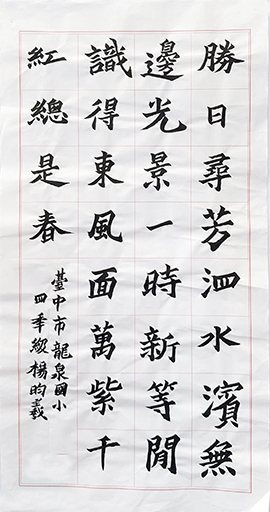 勝日尋芳泗水濱無
邊光景一時新等閒
識得東風面萬紫千
紅總是春
臺中市龍泉國小
四年級楊昀羲